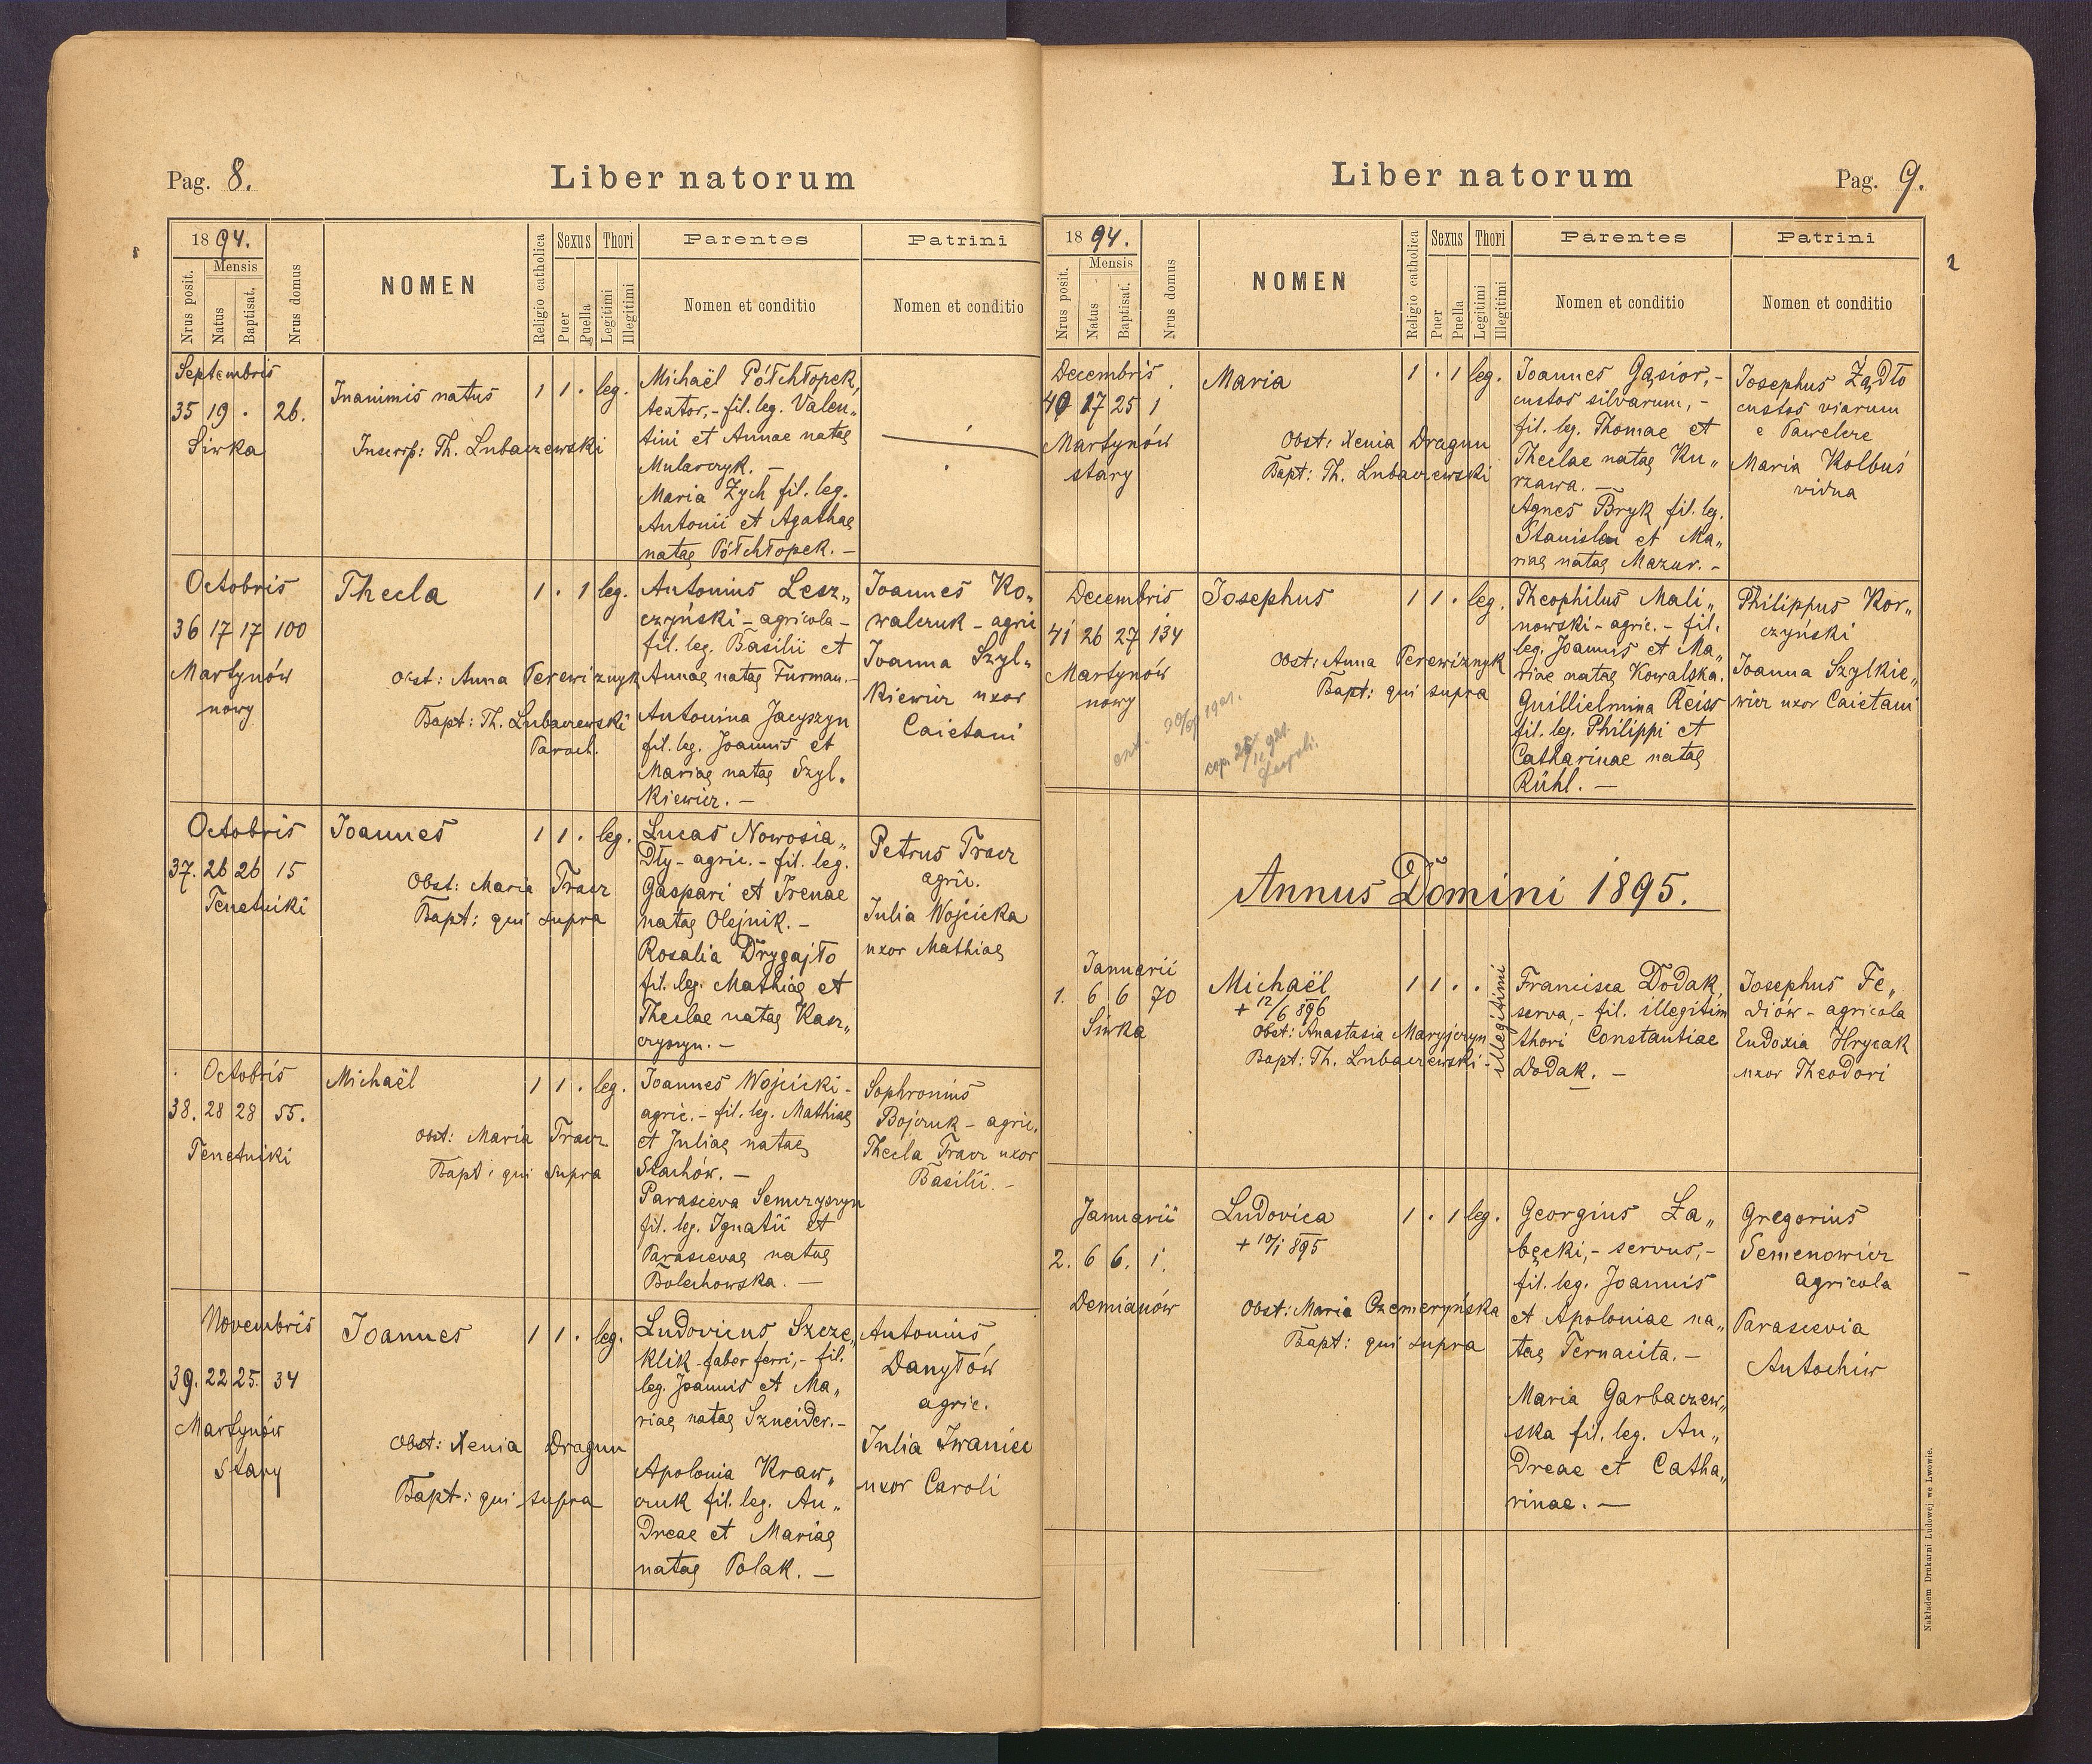 Pag. 8.
Liber natorum
1894.
Mensis
Nrus posit.
Natus
Baptisat.
Nrus domus
NOMEN
Religio catholica
Sexus
Puer
Puella
Thori
Legitimi
Illegitimi
Parentes
Nomen et conditio
Patrini
Nomen et conditio
Septembris
35 19 . 26.
Siwka
Inanimis natus
Inscrps: Th. Lubaczewski
1 1 . leg.
Michaël Półchłopek,
textor,- fil. leg. Valen„
tini et Annae natae
Mularczyk. -
Maria Zych fil. leg.
Antonii et Agathae
natae Półchłopek. -
Octobris
36 17 17 100
Martynów
nowy
Thecla
Obst: Anna Perewiznyk
Bapt: Th. Lubaczewski
Paroch.
1 . 1 leg.
Antonius Lesz„
czyński - agricola -
fil. leg. Basilii et
Annae natae Furman.-
Antonina Jacyszyn
fil. leg. Joannis et
Mariae natae Szyl„
kiewicz. -
Joannes Ko„
walczuk - agric
Joanna Szyl„
kiewicz uxor
Caietani
Octobris
37. 26 26 15
Tenetniki
Joannes
Obst: Maria Tracz
Bapt: qui supra
1 1 . leg.
Lucas Nowosia„
dły - agric. - fil. leg.
Gaspari et Irenae
natae Olejnik. -
Rosalia Drygajło
fil. leg. Mathiae et
Theclae natae Kasz„
czyszyn. -
Petrus Tracz
agric.
Julia Wojcicka
uxor Mathiae
Octobris
38. 28 28 55.
Tenetniki
Michaël
Obst: Maria Tracz
Bapt: qui supra
1 1 . leg.
Joannes Wojcicki -
agric. - fil. leg. Mathiae
et Juliae natae
Stachów. -
Parasceva Semczyszyn
fil. leg. Ignatii et
Parascevae natae
Bolechowska. -
Sophronius
Bojczuk - agric.
Thecla Tracz uxor
Basilii. -
Novembris
39. 22 25. 34
Martynów
stary
Joannes
Obst: Xenia Dragun
Bapt: qui supra
1 1 . leg.
Ludovicus Szcze„
klik - faber ferri,- fil.
leg. Joannis et Ma„
riae natae Szneider. -
Apolonia Kraw„
czuk fil. leg. An„
dreae et Mariae
natae Polak. -
Antonius
Danyłów
agric.
Julia Iwaniec
uxor Caroli
Liber natorum
Pag. 9.
2
1894.
Mensis
Nrus posit.
Natus
Baptisat.
Nrus domus
NOMEN
Religio catholica
Sexus
Puer
Puella
Thori
Legitimi
Illegitimi
Parentes
Nomen et conditio
Patrini
Nomen et conditio
Decembris
40 17 25 1
Martynów
stary
Maria
Obst: Xenia Dragun
Bapt: Th. Lubaczewski
1 . 1 leg.
Joannes Gąsior,-
custos silvarum,-
fil. leg. Thomae et
Theclae natae Ku„
rzawa. -
Agnes Bryk fil. leg.
Stanislai et Ma„
riae natae Mazur. -
Josephus Żądło
custos viarum
e Pawelcze
Maria Kolbuś
vidua
Decembris
41 26 27 134
Martynów
nowy
Josephus
Obst: Anna Perewiznyk
Bapt: qui supra
1 1 . leg.
Theophilus Mali„
nowski - agric. - fil.
leg. Joannis et Ma„
riae natae Kowalska.
Guillielmina Reiss
fil. leg. Philippi et
Catharinae natae
Rühl. -
Philippus Kor„
czyński
Joanna Szylkie„
wicz uxor Caietani
Annus Domini 1895.
Januarii
1. 6 6 70
Siwka
Michaël
+ 12/6 896
Obst: Anastasia Maryjczyn
Bapt: Th. Lubaczewski -
1 1 . .
illegitimi
Francisca Dodak,
serva,- fil. illegitim
thori Constantiae
Dodak. -
Josephus Fe„
diów - agricola
Eudoxia Hrycak
uxor Theodori
Januarii
2. 6 6. 1.
Demianów
Ludovica
+ 10/1 895
Obst: Maria Czemeryńska
Bapt: qui supra
1 . 1 leg.
Georgius Ła„
będzki,- servus,-
fil. leg. Joannis
et Apoloniae na„
tae Ternacita. -
Maria Garbaczew„
ska fil. leg. An„
dreae et Catha„
rinae. -
Gregorius
Semenowicz
agricola
Parascevia
Antochiw
Nakładem Drukarni Ludowej we Lwowie.